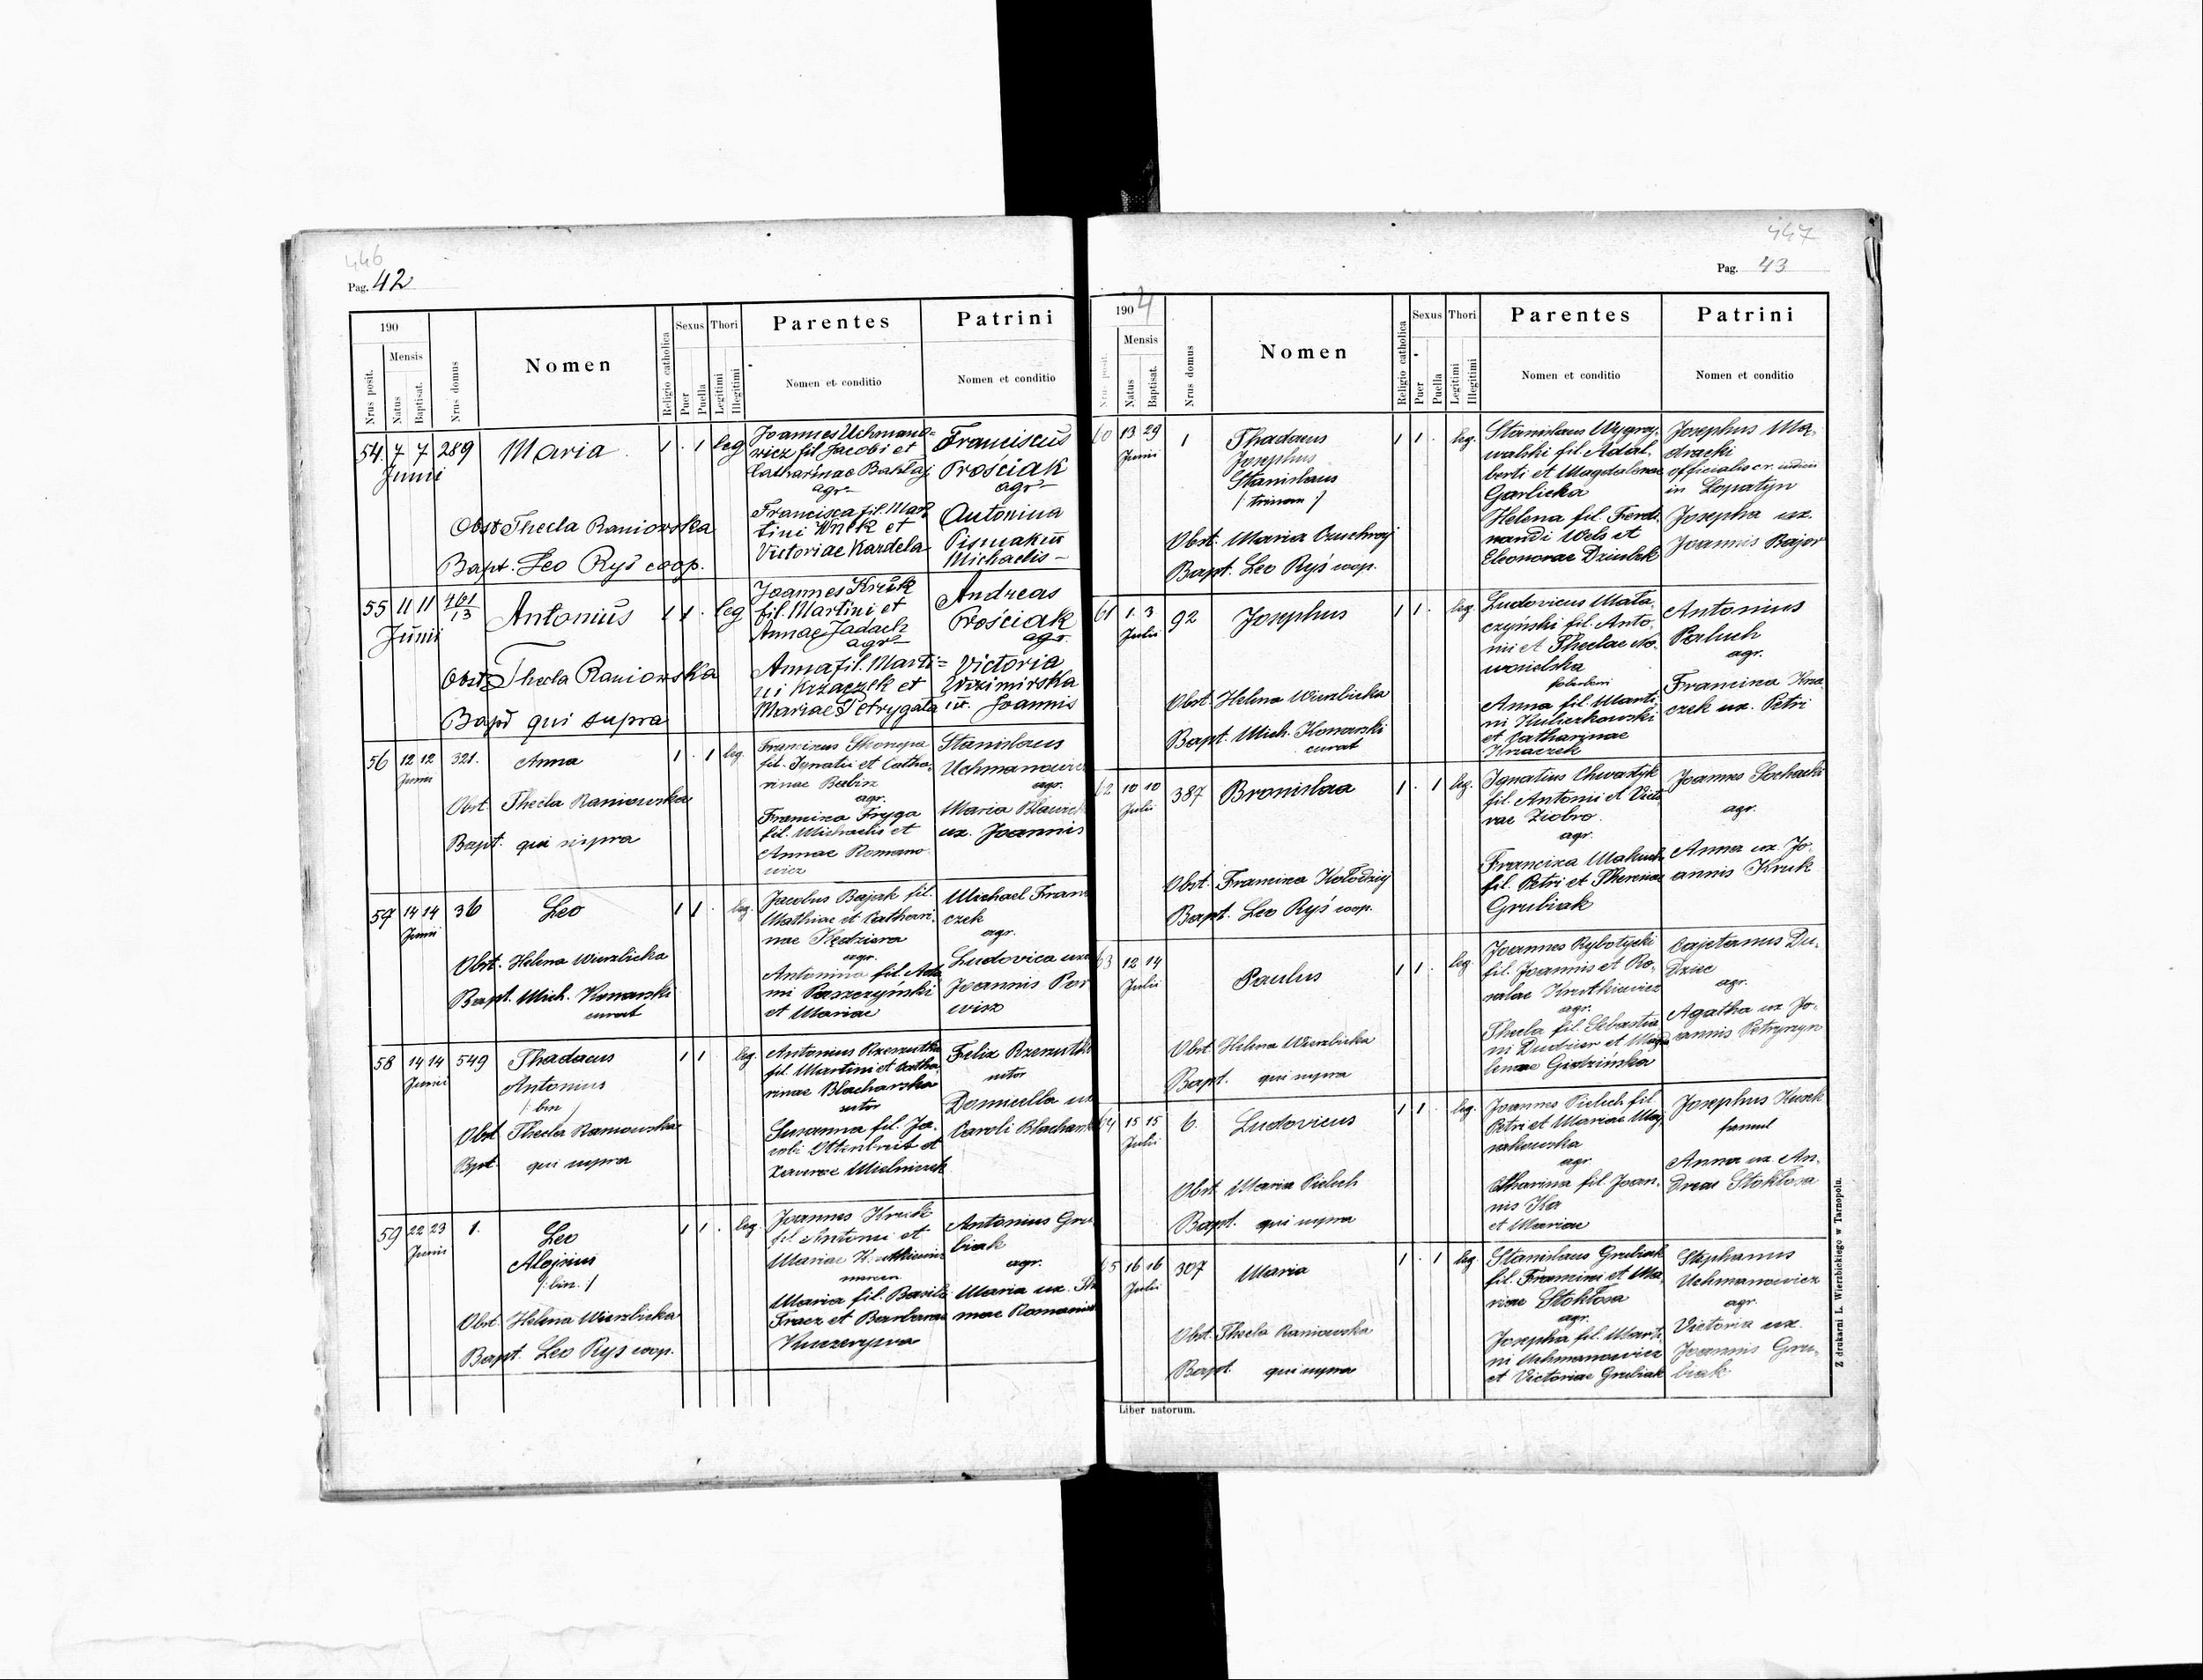 446
Pag. 42
190
Nrus posit.
Mensis
Natus
Baptisat.
Nrus domus
Nomen
Religio catholica
Sexus
Puer
Puella
Thori
Legitimi
Illegitimi
Parentes
Nomen et conditio
Patrini
Nomen et conditio
54. 7 7 289 Maria 1 . 1 leg
Junii
Joannes Uchmano=
wicz fil Jacobi et
Catharinae Bahłaj
agr
Francisca fil. Mar
tini Wnęk et
Victoriae Kardela
Franciscus
Prościak
agr
Antonina
Michaelis
Obst Thecla Raniowska
Bapt. Leo Ryś coop.
55 11 11 461/13 Antonius 1 1 . leg
Junii
Joannes Kruk
fil. Martini et
Annae Jadach
agr
Anna fil. Marti=
ni Krzaczek et
Mariae Petrygata
Andreas
Prościak
agr.
Victoria
Joannis
Obst Thecla Raniowska
Bapt qui supra
56 12 12 321. Anna 1 . 1 leg.
Junii
Franciscus
fil. Ignatii et Catha
rinae
agr.
Francisca Fryga
fil. Michaelis et
Annae Romano
wicz
Stanislaus
Uchmanowicz
agr.
Maria
ux. Joannis
Obst. Thecla Raniowska
Bapt. qui supra
57 14 14 36 Leo 1 1 . leg.
Junii
Jacobus Bajak fil.
Mathiae et Cathari
nae Kędziora
agr.
Antonina fil. Ada
mi Paszczyński
et Mariae
Michael Fran
czek
agr.
Ludovica
Joannis
Obst. Helena Wierzbicka
Bapt. Mich. Konarski
curat
58 14 14 549 Thadaeus 1 1 leg.
Junii
Antonius
/: bin
Antonius Rzeszutko
fil. Martini et Catha
rinae Blacharska
sutor
Susanna fil. Ja.
cobi et
Mielniczek
Felix
sutor
ux
Caroli
Obst Thecla Raniowska
Bpt. qui supra
59 22 23 1. Leo 1 1 . leg.
Junii
Aloisius
/: bin. :/
Joannes Kruk
fil. Antonii et
Mariae
Maria fil. Basili
Fraez et Barbarae
Antonius Gru
biak
agr.
Maria ux.
mae
Obst. Helena Wierzbicka
Bapt. Leo Ryś coop.
447
Pag. 43
1904
Nrus posit.
Mensis
Natus
Baptisat.
Nrus domus
Nomen
Religio catholica
Sexus
Puer
Puella
Thori
Legitimi
Illegitimi
Parentes
Nomen et conditio
Patrini
Nomen et conditio
60 13 29 1 Thadaeus 1 1 . leg.
Junii
Josephus
Stanislaus
/: trinom :/
Stanislaus Wygry
walski fil. Adal.
berti et Magdalenae
Garlicka
Helena fil. Ferdi
nandi Wels et
Eleonorae Dziubek
Josephus Mą.
dracki
officialis
in Łopatyn
Josepha ux.
Joannis Bajor
Obst. Maria
Bapt. Leo Ryś coop.
61 1. 3 92 Josephus 1 1 . leg.
Julii
Ludovicus Mata.
czyński fil. Anto.
nii et Theclae No.
wosielska
Anna fil. Marti
ni
et Catharinae
Krzaczek
Antonius
Paluch
agr.
Francisca Krza
czek ux. Petri
Obst. Helena Wierzbicka
Bapt. Mich. Konarski
curat
62 10 10 387 Bronislaa 1 . 1 leg.
Julii
Ignatius Chwastyk
fil. Antonii et Victo
riae Ziobro
agr.
Francisca
fil. Petri et Theresiae
Grubiak
Joannes Sochacki
agr.
Anna ux. Jo.
annis Kruk
Obst. Francisca Kołodziej
Bapt. Leo Ryś coop.
63 12 14 Paulus 1 1 . leg.
Julii
Joannes Rybotycki
fil. Joannis et Ro.
saliae
agr.
Thecla fil. Sebastia
ni et Magda
lenae
Cajetanus Du.
dziec
agr.
Agatha ux Jo.
annis
Obst Helena Wierzbicka
Bapt. qui supra
64 15 15 6. Ludovicus 1 1 . leg.
Julii
Joannes Pieluch fil
Petri et Mariae
agr.
Catharina fil. Joan.
nis
et Mariae
Josephus
famul
Anna ux. An.
dreae Stokłosa
Obst. Maria Pieluch
Bapt. qui supra
65 16 16 307 Maria 1 . 1 leg
Julii
Stanislaus Grubiak
fil. Francisci et Ma.
riae Stokłosa
agr.
Josepha fil. Marti.
ni Uchmanowicz
et Victoriae Grubiak
Stephanus
Uchmanowicz
agr.
Victoria ux.
Joannis Gru.
biak
Obst. Thecla Raniowska
Bapt. qui supra
Liber natorum.
Z drukarni L. Wierzbickiego w Tarnopolu.